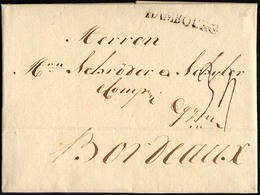 HAMBOURG
Herren
Schröder & Schyler
Comp.
Bordeaux